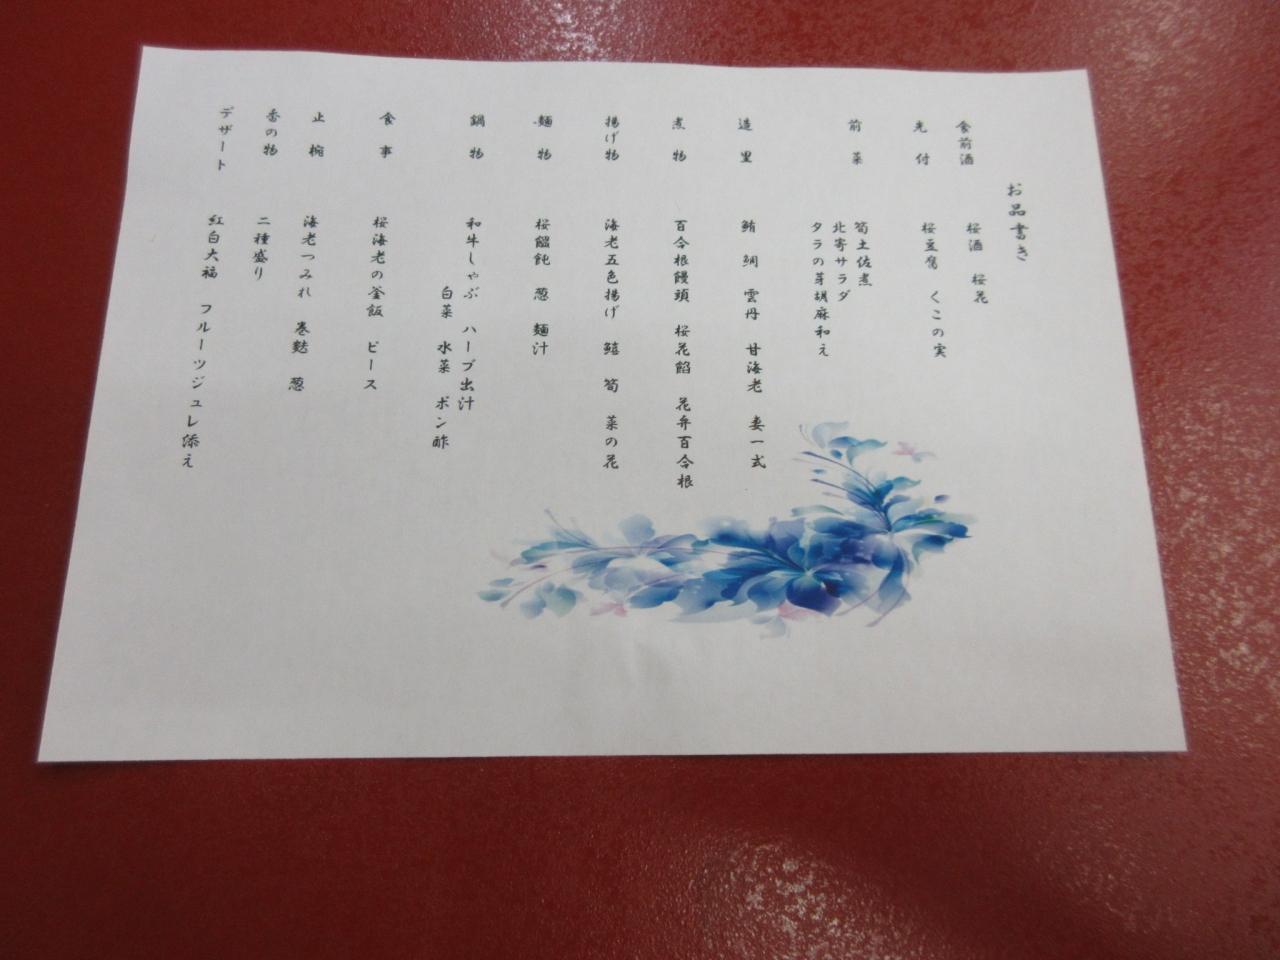 お品書き
食前酒 桜酒 桜花
先付 桜豆腐 くこの実
前菜 筍土佐煮
北寄サラダ
タラの芽胡麻和え
造里 鮪 鯛 雲丹 甘海老 妻一式
煮物 百合根饅頭 桜花餡 花弁百合根
揚げ物 海老五色揚げ 鱚 筍 菜の花
麺物 桜饂飩 葱 麺汁
鍋物 和牛しゃぶ ハーブ出汁
白菜 水菜 ポン酢
食事 桜海老の釜飯 ピース
止椀 海老つみれ 巻麩 葱
香の物 二種盛り
デザート 紅白大福 フルーツジュレ添え